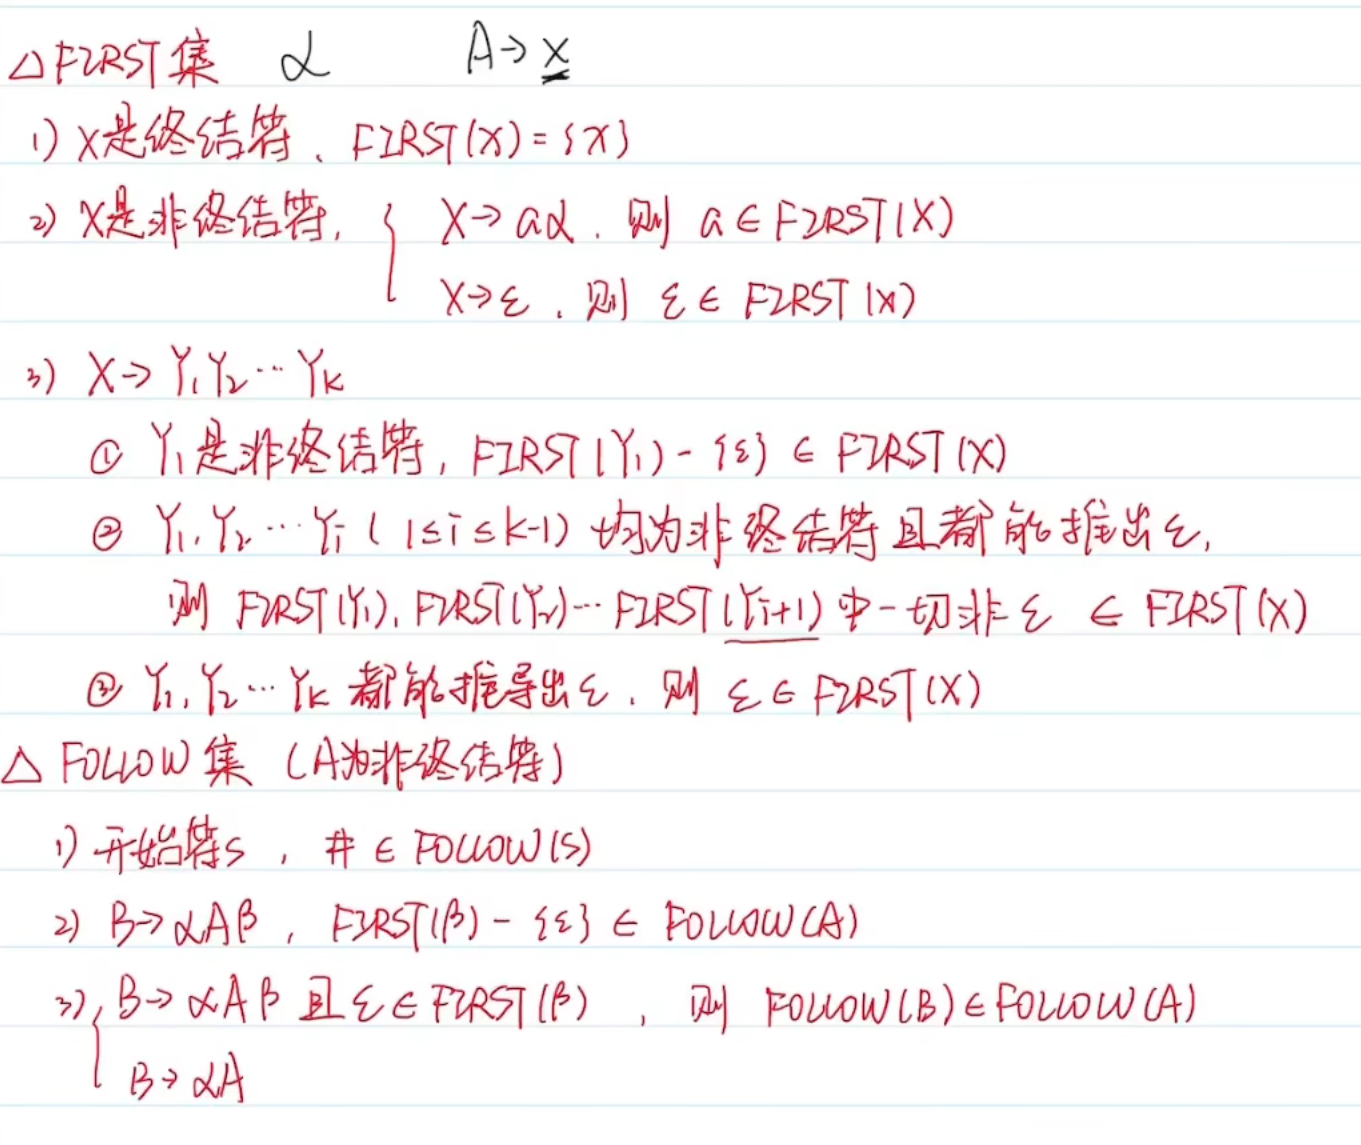 △FIRST集 α A→x
1) X是终结符、FIRST(X)={X}
2) X是非终结符, { X→aα. 则 a∈FIRST(X)
X→ε. 则 ε∈FIRST(X)
3) X→Y₁Y₂…Yₖ
① Y₁是非终结符, FIRST(Y₁)-{ε} ∈ FIRST(X)
② Y₁,Y₂…Yᵢ (1≤i≤k-1) 均为非终结符且都能推出ε,
则 FIRST(Y₁),FIRST(Y₂)…FIRST(Yᵢ+1)中一切非ε ∈ FIRST(X)
③ Y₁,Y₂…Yₖ 都能推导出ε. 则 ε∈FIRST(X)
△ FOLLOW集 (A为非终结符)
1) 开始符S , #∈FOLLOW(S)
2) B→αAβ, FIRST(β)-{ε} ∈ FOLLOW(A)
3) { B→αAβ 且ε∈FIRST(β) , 则 FOLLOW(B)∈FOLLOW(A)
B→αA